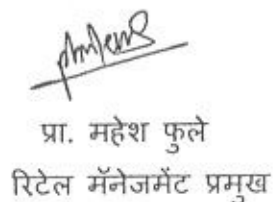 प्रा. महेश फुले
रिटेल मॅनेजमेंट प्रमुख